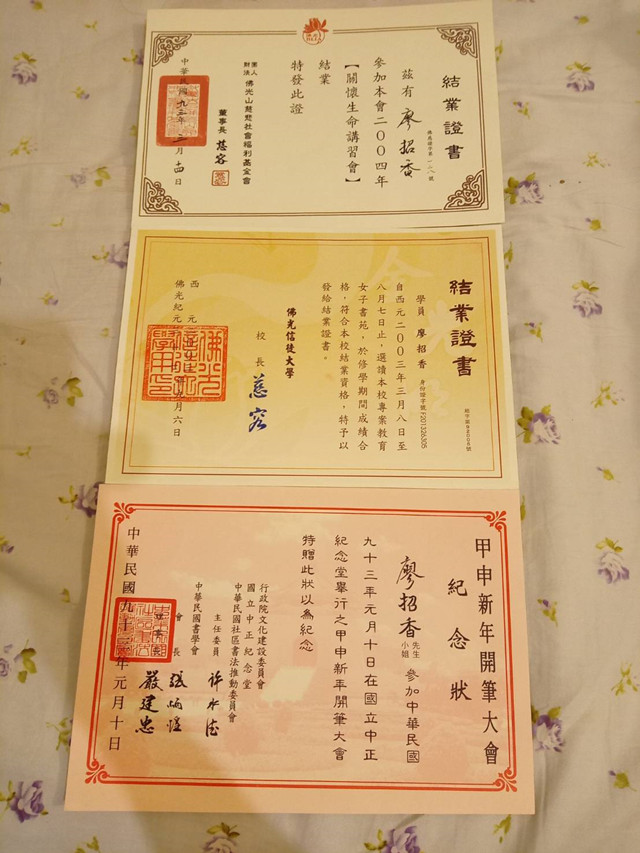 結業證書
佛慈證字第一二八號
茲有 廖招香
參加本會二００四年
【關懷生命講習會】
結業
特發此證
財團法人 佛光山慈悲社會福利基金會
董事長 慈容
中華民國九三年三月十四日
結業證書
學員 廖招香 身份證字號F201326305
自西元二００三年三月八日至
八月七日止，選讀本校專案教育
女子書苑，於修學期間成績合
格，符合本校結業資格，特予以
發給結業證書。
佛光信徒大學
校長 慈容
西元
佛光紀元
月六日
甲申新年開筆大會
紀念狀
廖招香 先生 小姐 參加中華民國
九十三年元月十日在國立中正
紀念堂舉行之甲申新年開筆大會
特贈此狀以為紀念
行政院文化建設委員會
國立中正紀念堂
中華民國社區書法推動委員會
主任委員 許水德
中華民國書學會
會長 張炳煌
嚴建忠
中華民國九十三年元月十日